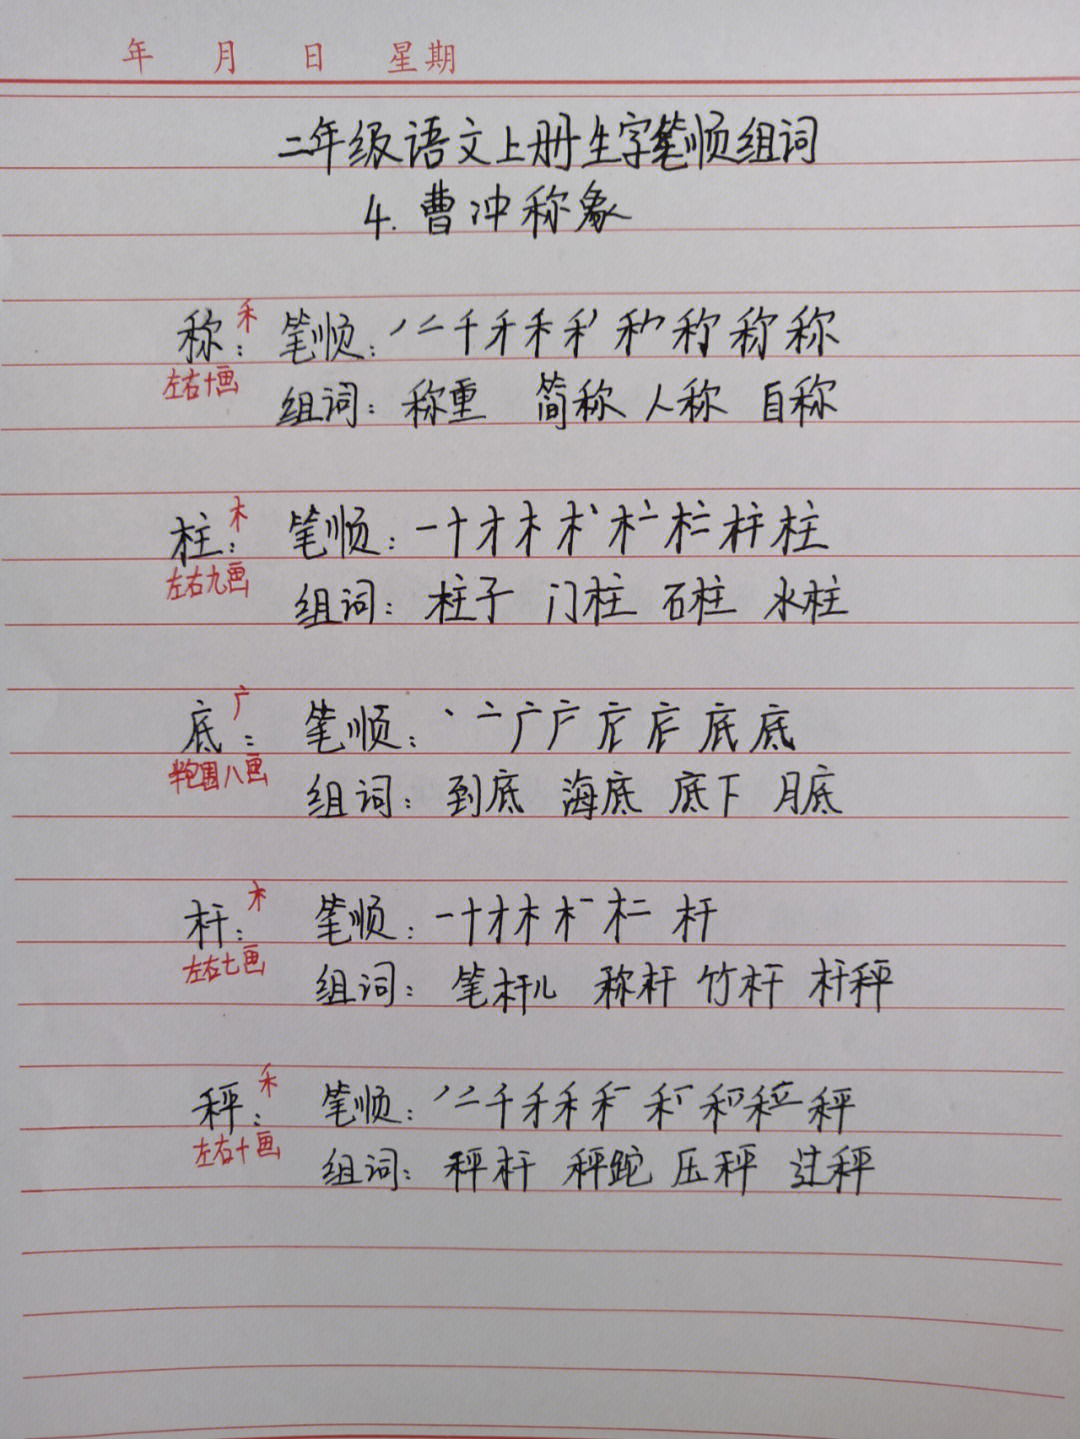 年 月 日 星期
二年级语文上册生字笔顺组词
4. 曹冲称象
禾
称: 笔顺: 丿 二 千 禾 禾 称 称 称
左右十画
组词: 称重 简称 人称 自称
木
柱: 笔顺: 一 十 才 木 柱
左右九画
组词: 柱子 门柱 石柱 水柱
广
底: 笔顺: 丶 亠 广 底 底
半包围八画
组词: 到底 海底 底下 月底
木
杆: 笔顺: 一 十 才 木 杆
左右七画
组词: 笔杆儿 称杆 竹杆 杆秤
禾
秤: 笔顺: 丿 二 千 禾 禾 秤
左右十画
组词: 秤杆 秤跎 压秤 过秤